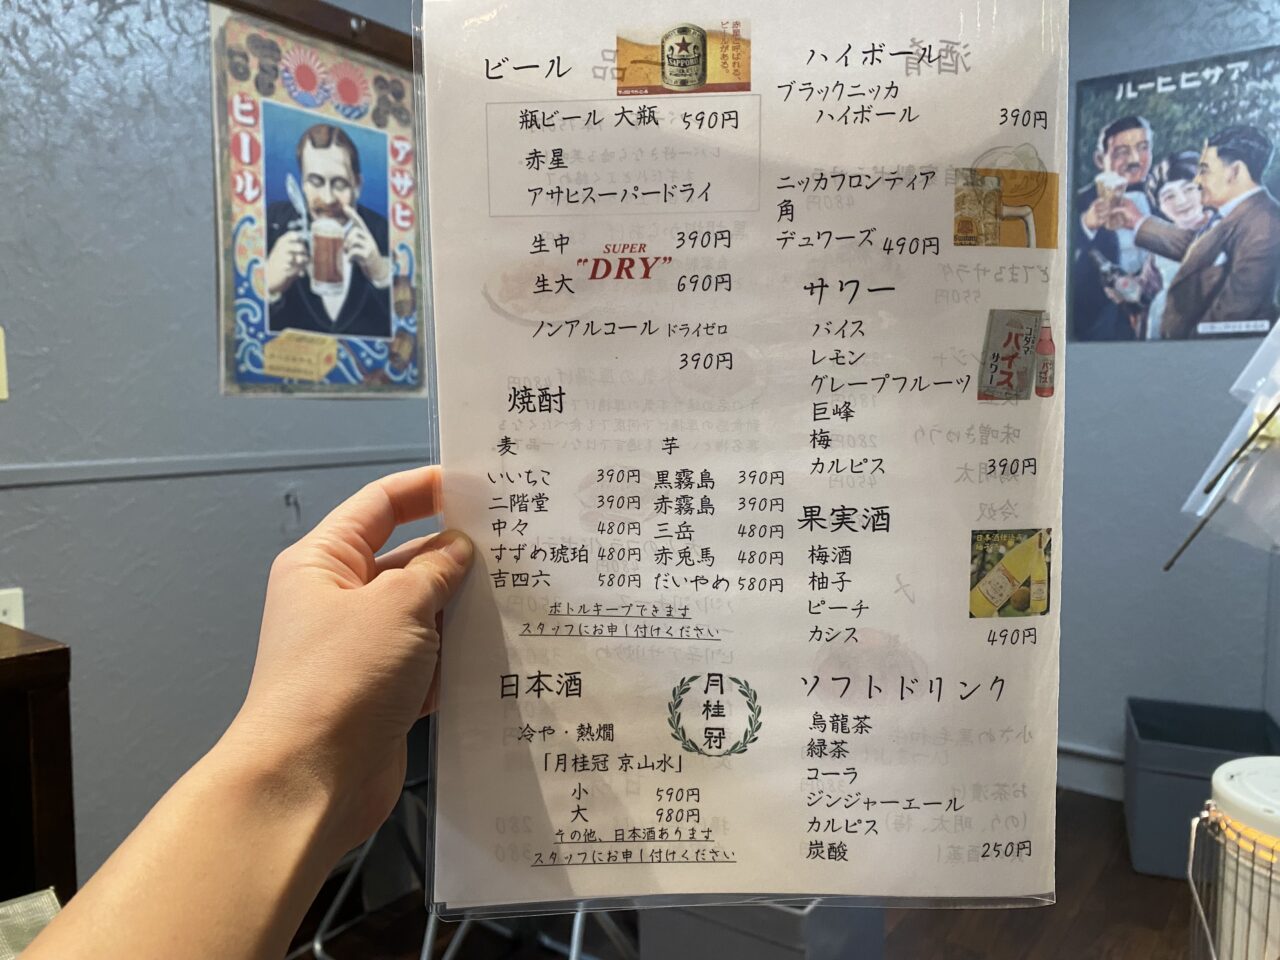 アサヒ
ビール
アサヒビール
ビール
赤星と呼ばれる、
ビールがある。
SAPPORO
瓶ビール 大瓶 590円
赤星
アサヒスーパードライ
生中 390円
SUPER
"DRY"
生大 690円
ノンアルコール ドライゼロ
390円
焼酎
麦
いいちこ 390円
二階堂 390円
中々 480円
すずめ琥珀 480円
吉四六 580円
芋
黒霧島 390円
赤霧島 390円
三岳 480円
赤兎馬 480円
だいやめ 580円
ボトルキープできます
スタッフにお申し付けください
日本酒
月桂冠
冷や・熱燗
「月桂冠 京山水」
小 590円
大 980円
その他、日本酒あります
スタッフにお申し付けください
ハイボール
ブラックニッカ
ハイボール 390円
ニッカフロンティア
角
デュワーズ 490円
サワー
バイス
レモン
グレープフルーツ
巨峰
梅
カルピス 390円
コダマ
バイス
サワー
果実酒
梅酒
柚子
ピーチ
カシス 490円
ソフトドリンク
烏龍茶
緑茶
コーラ
ジンジャーエール
カルピス
炭酸 250円